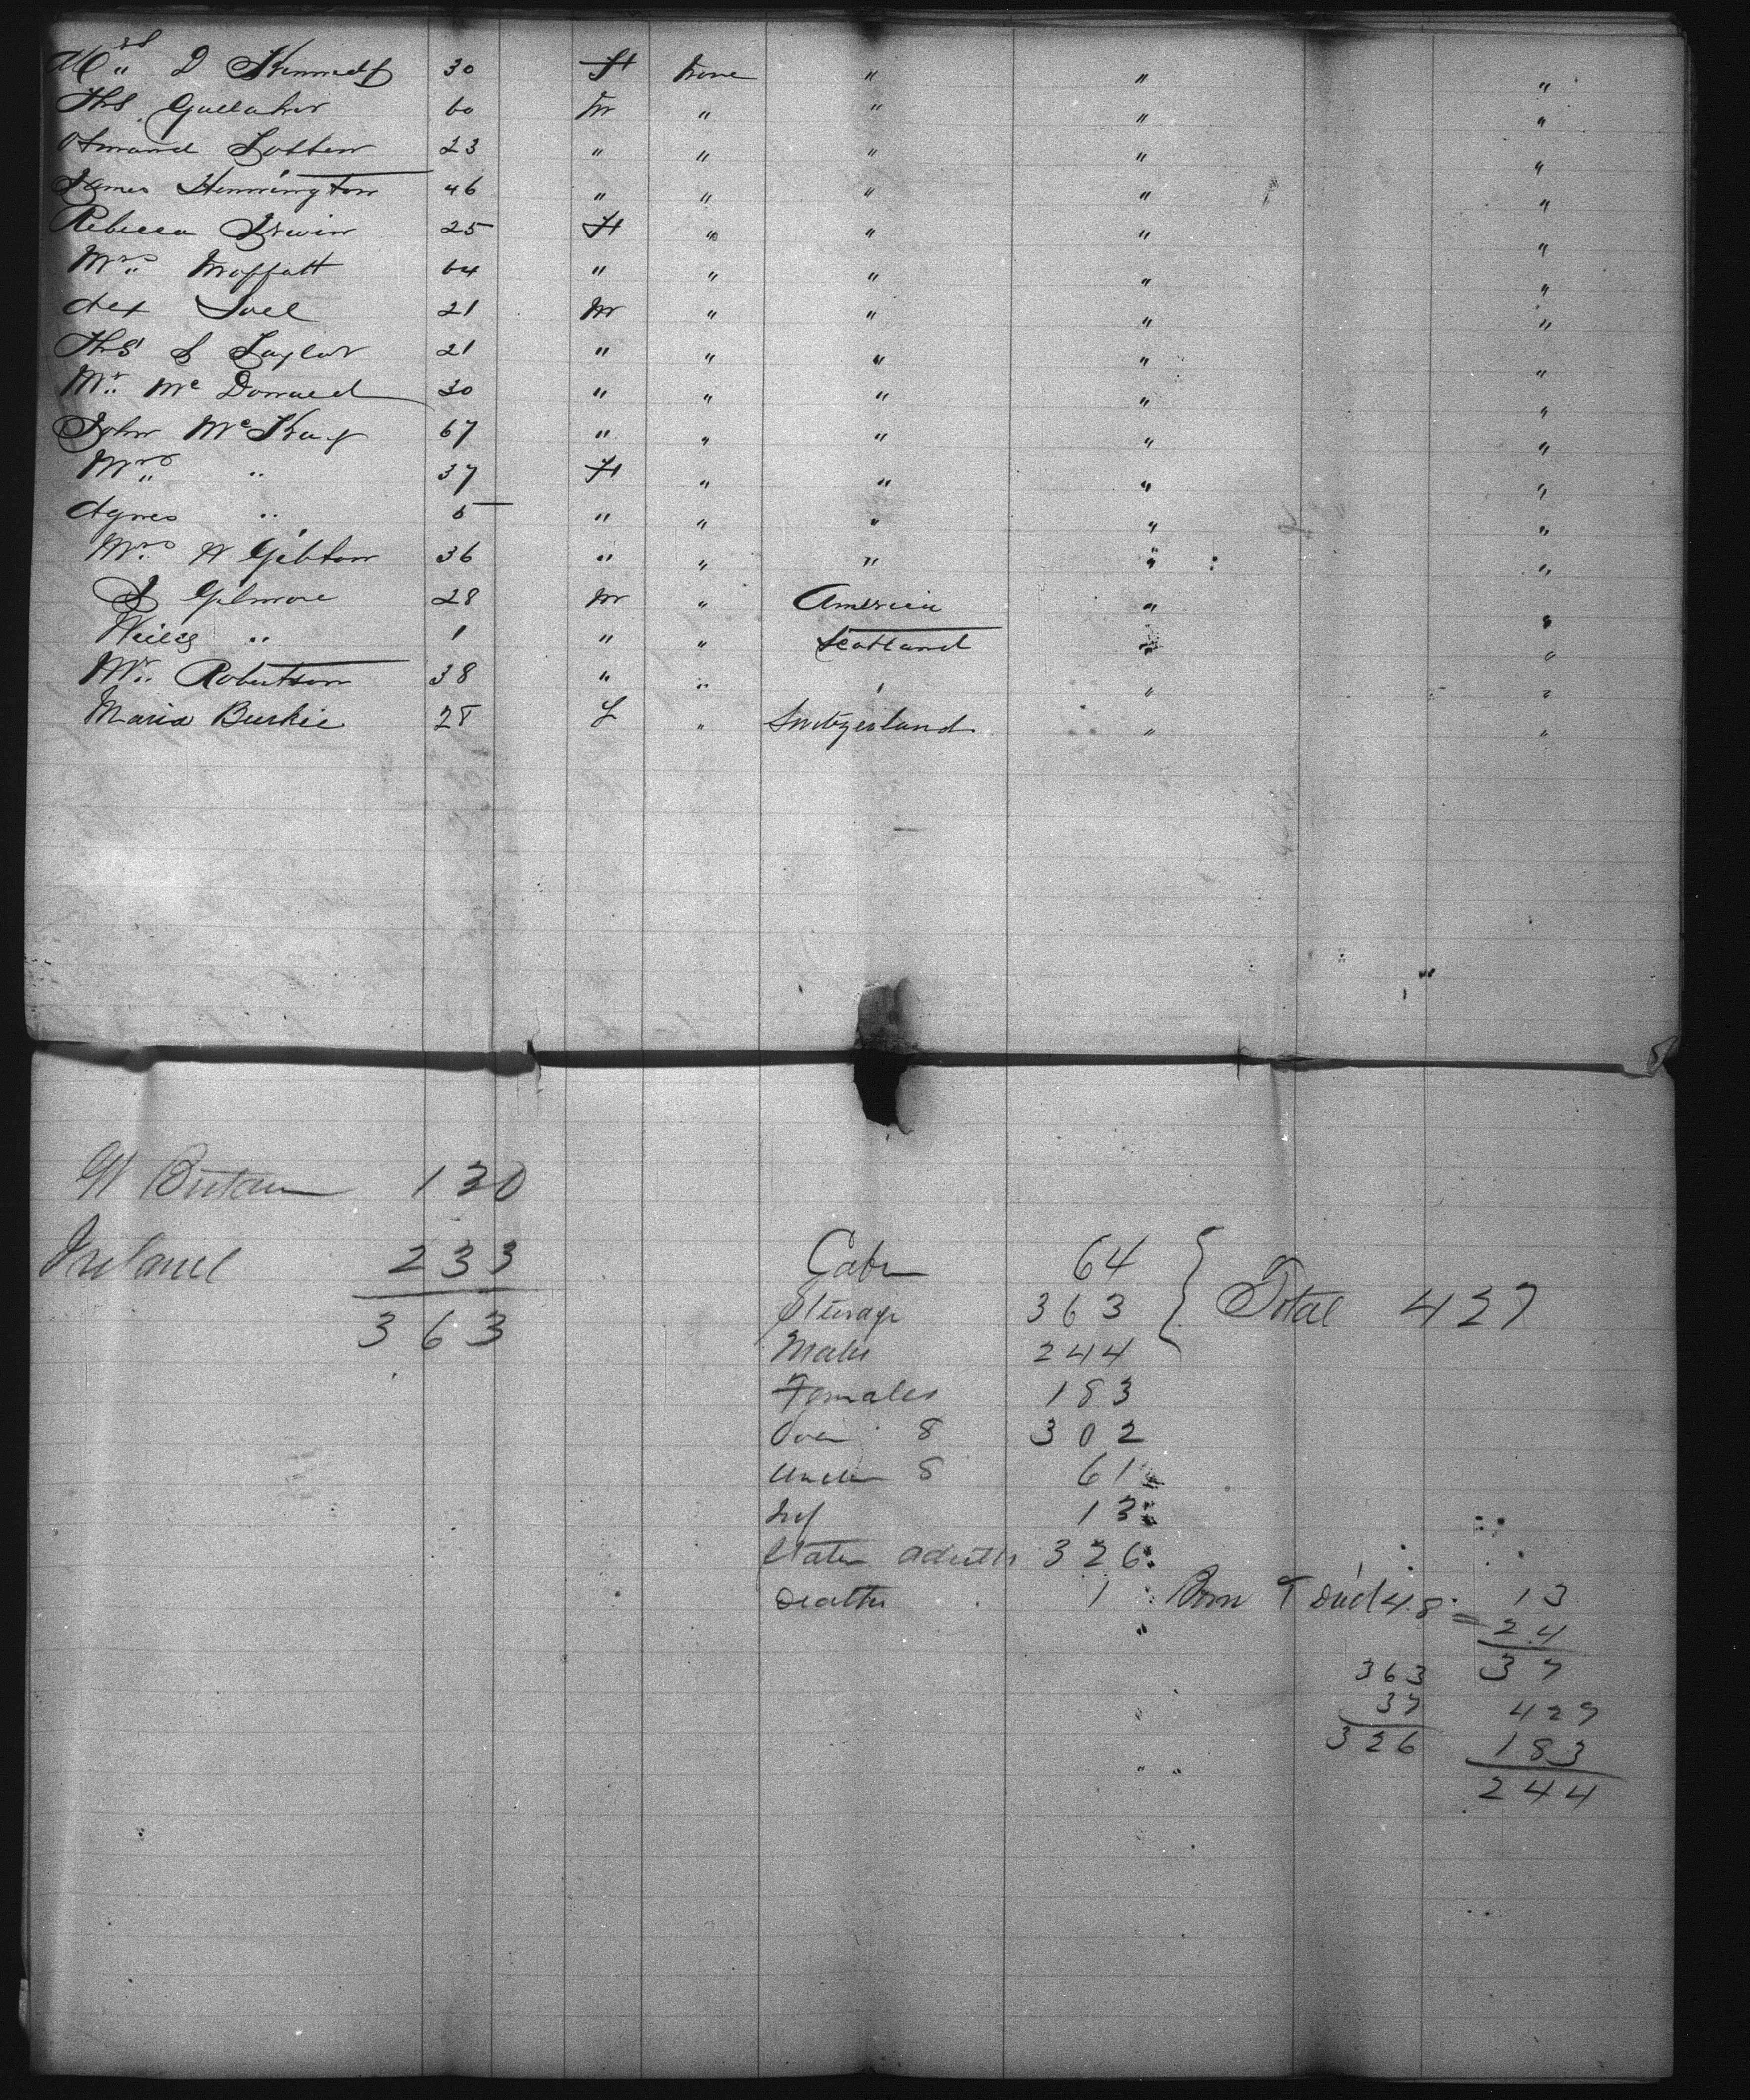 Mrs D Kennedy 30 F None " " "
Ths Gallaher 60 M " " " "
23 " " " " "
James Hennington 46 " " " " "
Rebecca Irwin 25 F " " " "
Mrs Moffatt 64 " " " " "
Alex 21 M " " " "
Ths J Taylor 21 " " " " "
Mr Mc Donald 30 " " " " "
John McKay 67 " " " " "
Mrs " 37 F " " " "
Agnes " 5 " " " " "
Mrs W Gibton 36 " " " " "
J Gilmore 28 M " America " "
" 1 " " Scotland " "
Mr Robertson 38 " " " " "
Maria Burkie 28 F " Switzerland " "
Gt Britain 130
Ireland 233
363
Cabin 64
Sterage 363
Total 427
Males 244
Females 183
Over 8 302
Under 8 61
Inf 13
Stater adults 326
Deaths 1 Born & Died 48 = 13
24
37
363
37
326
427
183
244